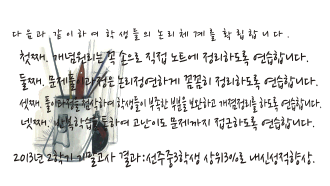 다음과 같이하여 학생들의 논리체계를 확립합니다.
첫째, 개념원리는 꼭 손으로 직접 노트에 정리하도록 연습합니다.
둘째, 문제풀이과정은 논리정연하게 꼼꼼히 정리하도록 연습합니다.
셋째, 풀이과정을 첨삭하여 학생들이 부족한 부분을 보완하고 개편정리를 하도록 연습합니다.
넷째, 반복학습을 통하여 고난이도 문제까지 접근하도록 연습합니다.
2013년 2학기 기말고사 결과:선주중3학생 상위3%로 내신성적향상.